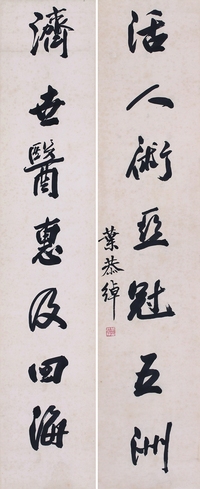 活人術亞冠五洲
濟世醫惠及四海
葉恭綽